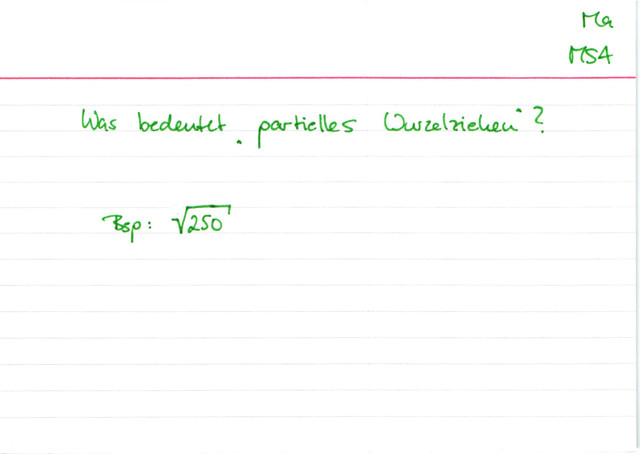 Ma
MSA
Was bedeutet "partielles Wurzelziehen"?
Bsp: √250